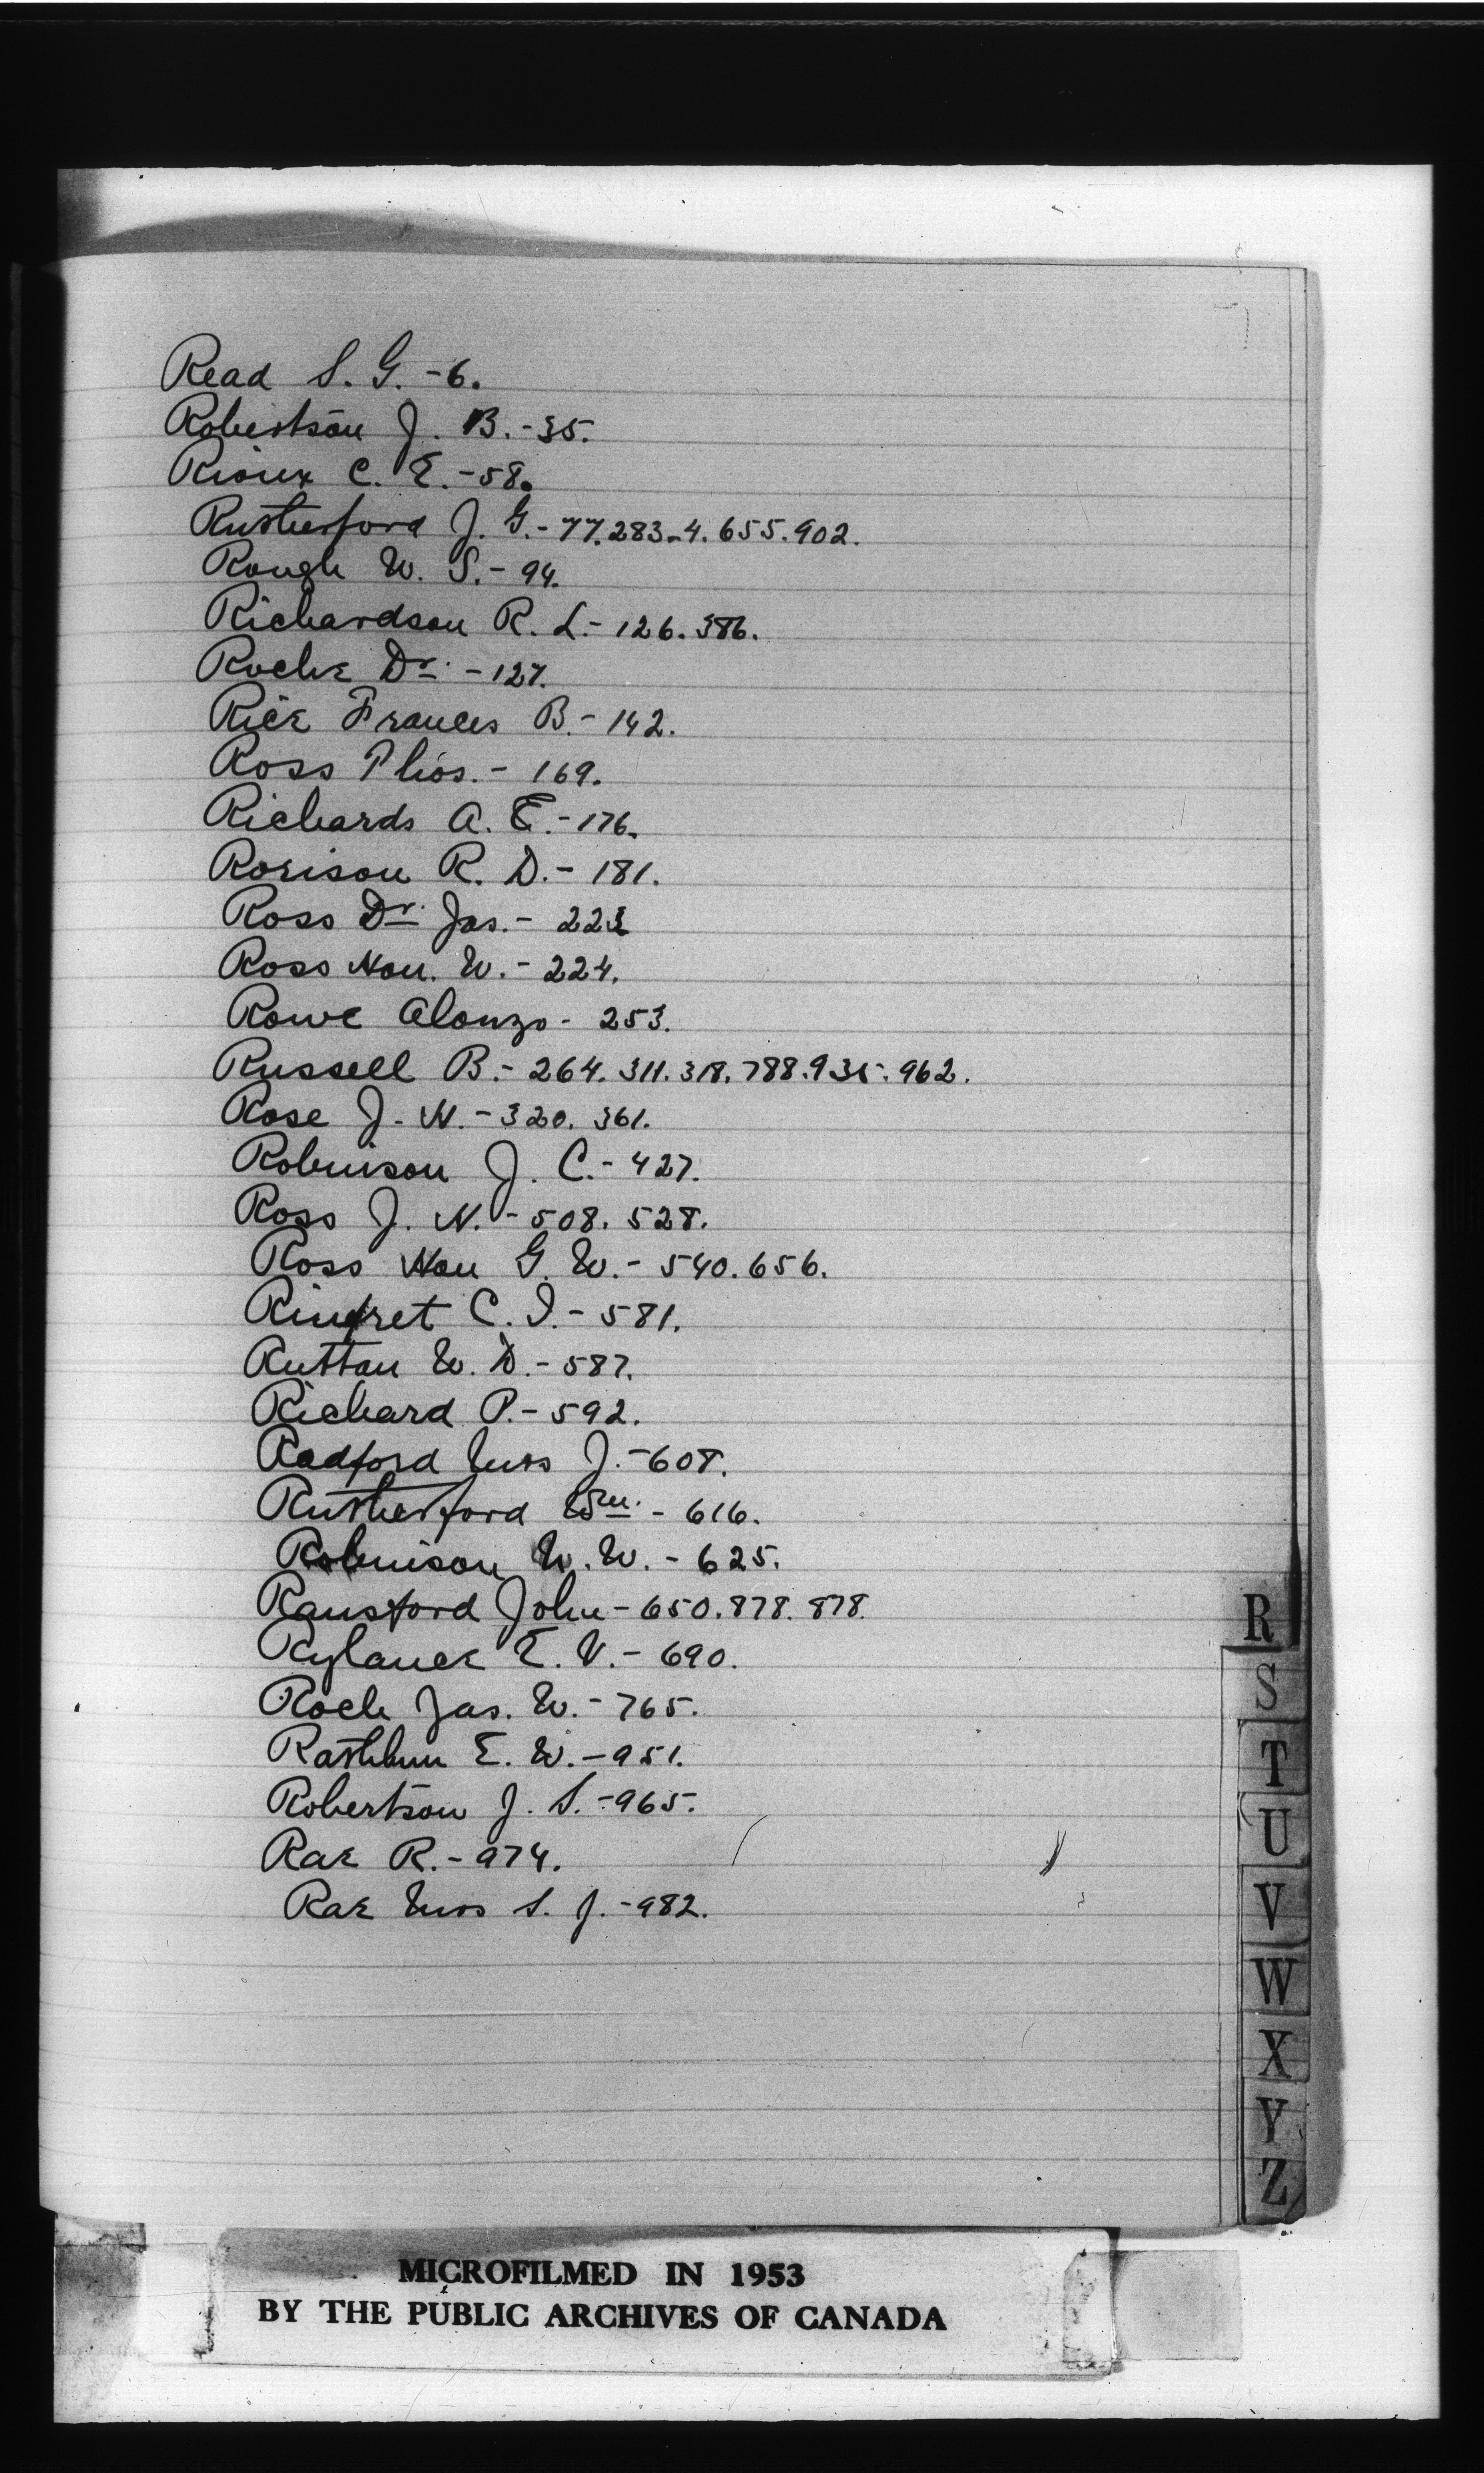 Read S. G. - 6.
Robertson J. B. - 35.
Rioux C. E. - 58.
Rutherford J. G. - 77. 283-4. 655. 902.
Rough W. S. - 94.
Richardson R. L. - 126. 386.
Roche Dr. - 127.
Rice Frances B. - 142.
Ross Thos. - 169.
Richards A. E. - 176.
Rorison R. D. - 181.
Ross Dr. Jas. - 223
Ross Hon. W. - 224.
Rowe Alonzo - 253.
Russell B. - 264. 311. 318. 788. 935. 962.
Rose J. W. - 320. 361.
Robinson J. C. - 427.
Ross J. N. - 508. 528.
Ross Hon G. W. - 540. 656.
Rinfret C. I. - 581.
Ruttan W. D. - 587.
Richard P. - 592.
Radford Miss J. - 608.
Rutherford Wm. - 616.
Robinson W. W. - 625.
Ransford John - 650. 878. 878.
Rylance E. V. - 690.
Roch Jas. W. - 765.
Rathbun E. W. - 951.
Robertson J. S. - 965.
Rae R. - 974.
Rae Miss S. J. - 982.
R
S
T
U
V
W
X
Y
Z
MICROFILMED IN 1953
BY THE PUBLIC ARCHIVES OF CANADA